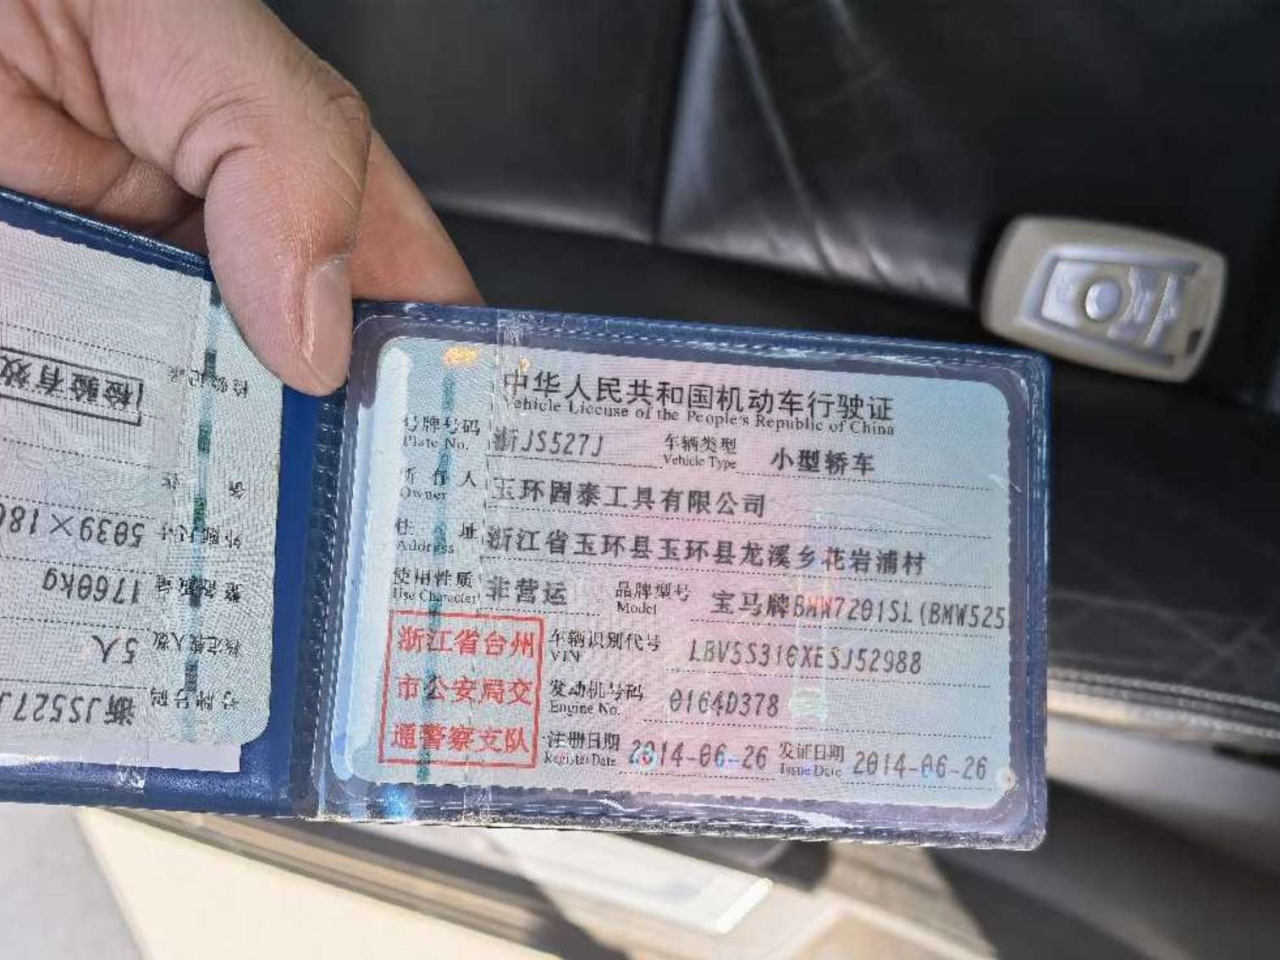 中华人民共和国机动车行驶证
Vehicle License of the People's Republic of China
号牌号码 浙JS527J 车辆类型 小型轿车
Plate No. Vehicle Type
所有人 玉环固泰工具有限公司
Owner
住址 浙江省玉环县玉环县龙溪乡花岩浦村
Address
使用性质 非营运 品牌型号 宝马牌BMW7201SL(BMW525
Use Character Model
浙江省台州
市公安局交
通警察支队
车辆识别代号 LBV5S310XESJ52988
VIN
发动机号码 0164D378
Engine No.
注册日期 2014-06-26 发证日期 2014-06-26
Register Date Issue Date
号牌号码 浙JS527J
核定载人数 5人
整备质量 1760kg
外廓尺寸 5039×180
检验记录
检验有效